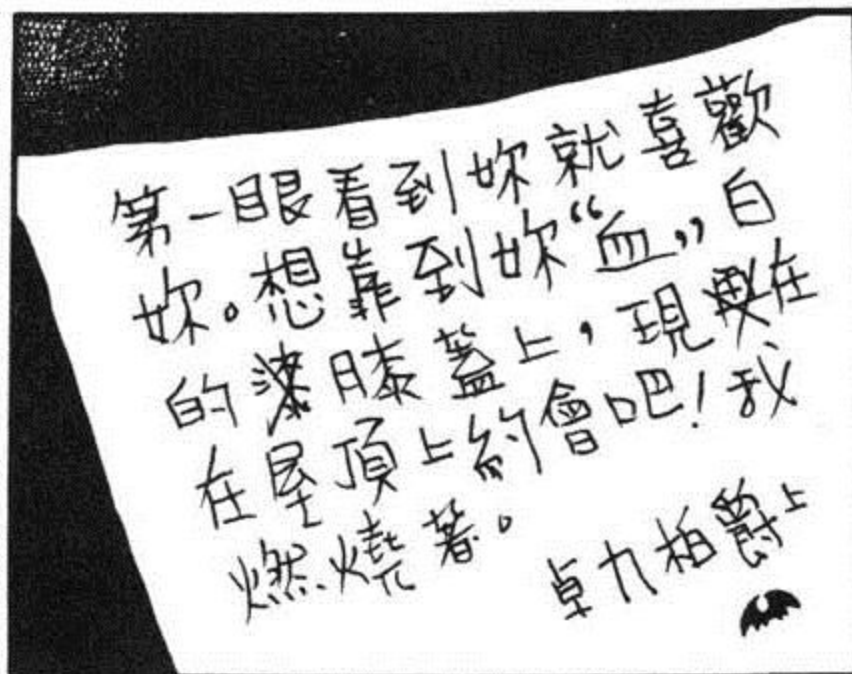 第一眼看到妳就喜歡
妳。想靠到妳“血”白
的膝蓋上，現在
在屋頂上約會吧！我
燃燒著。
卓九柏爵上